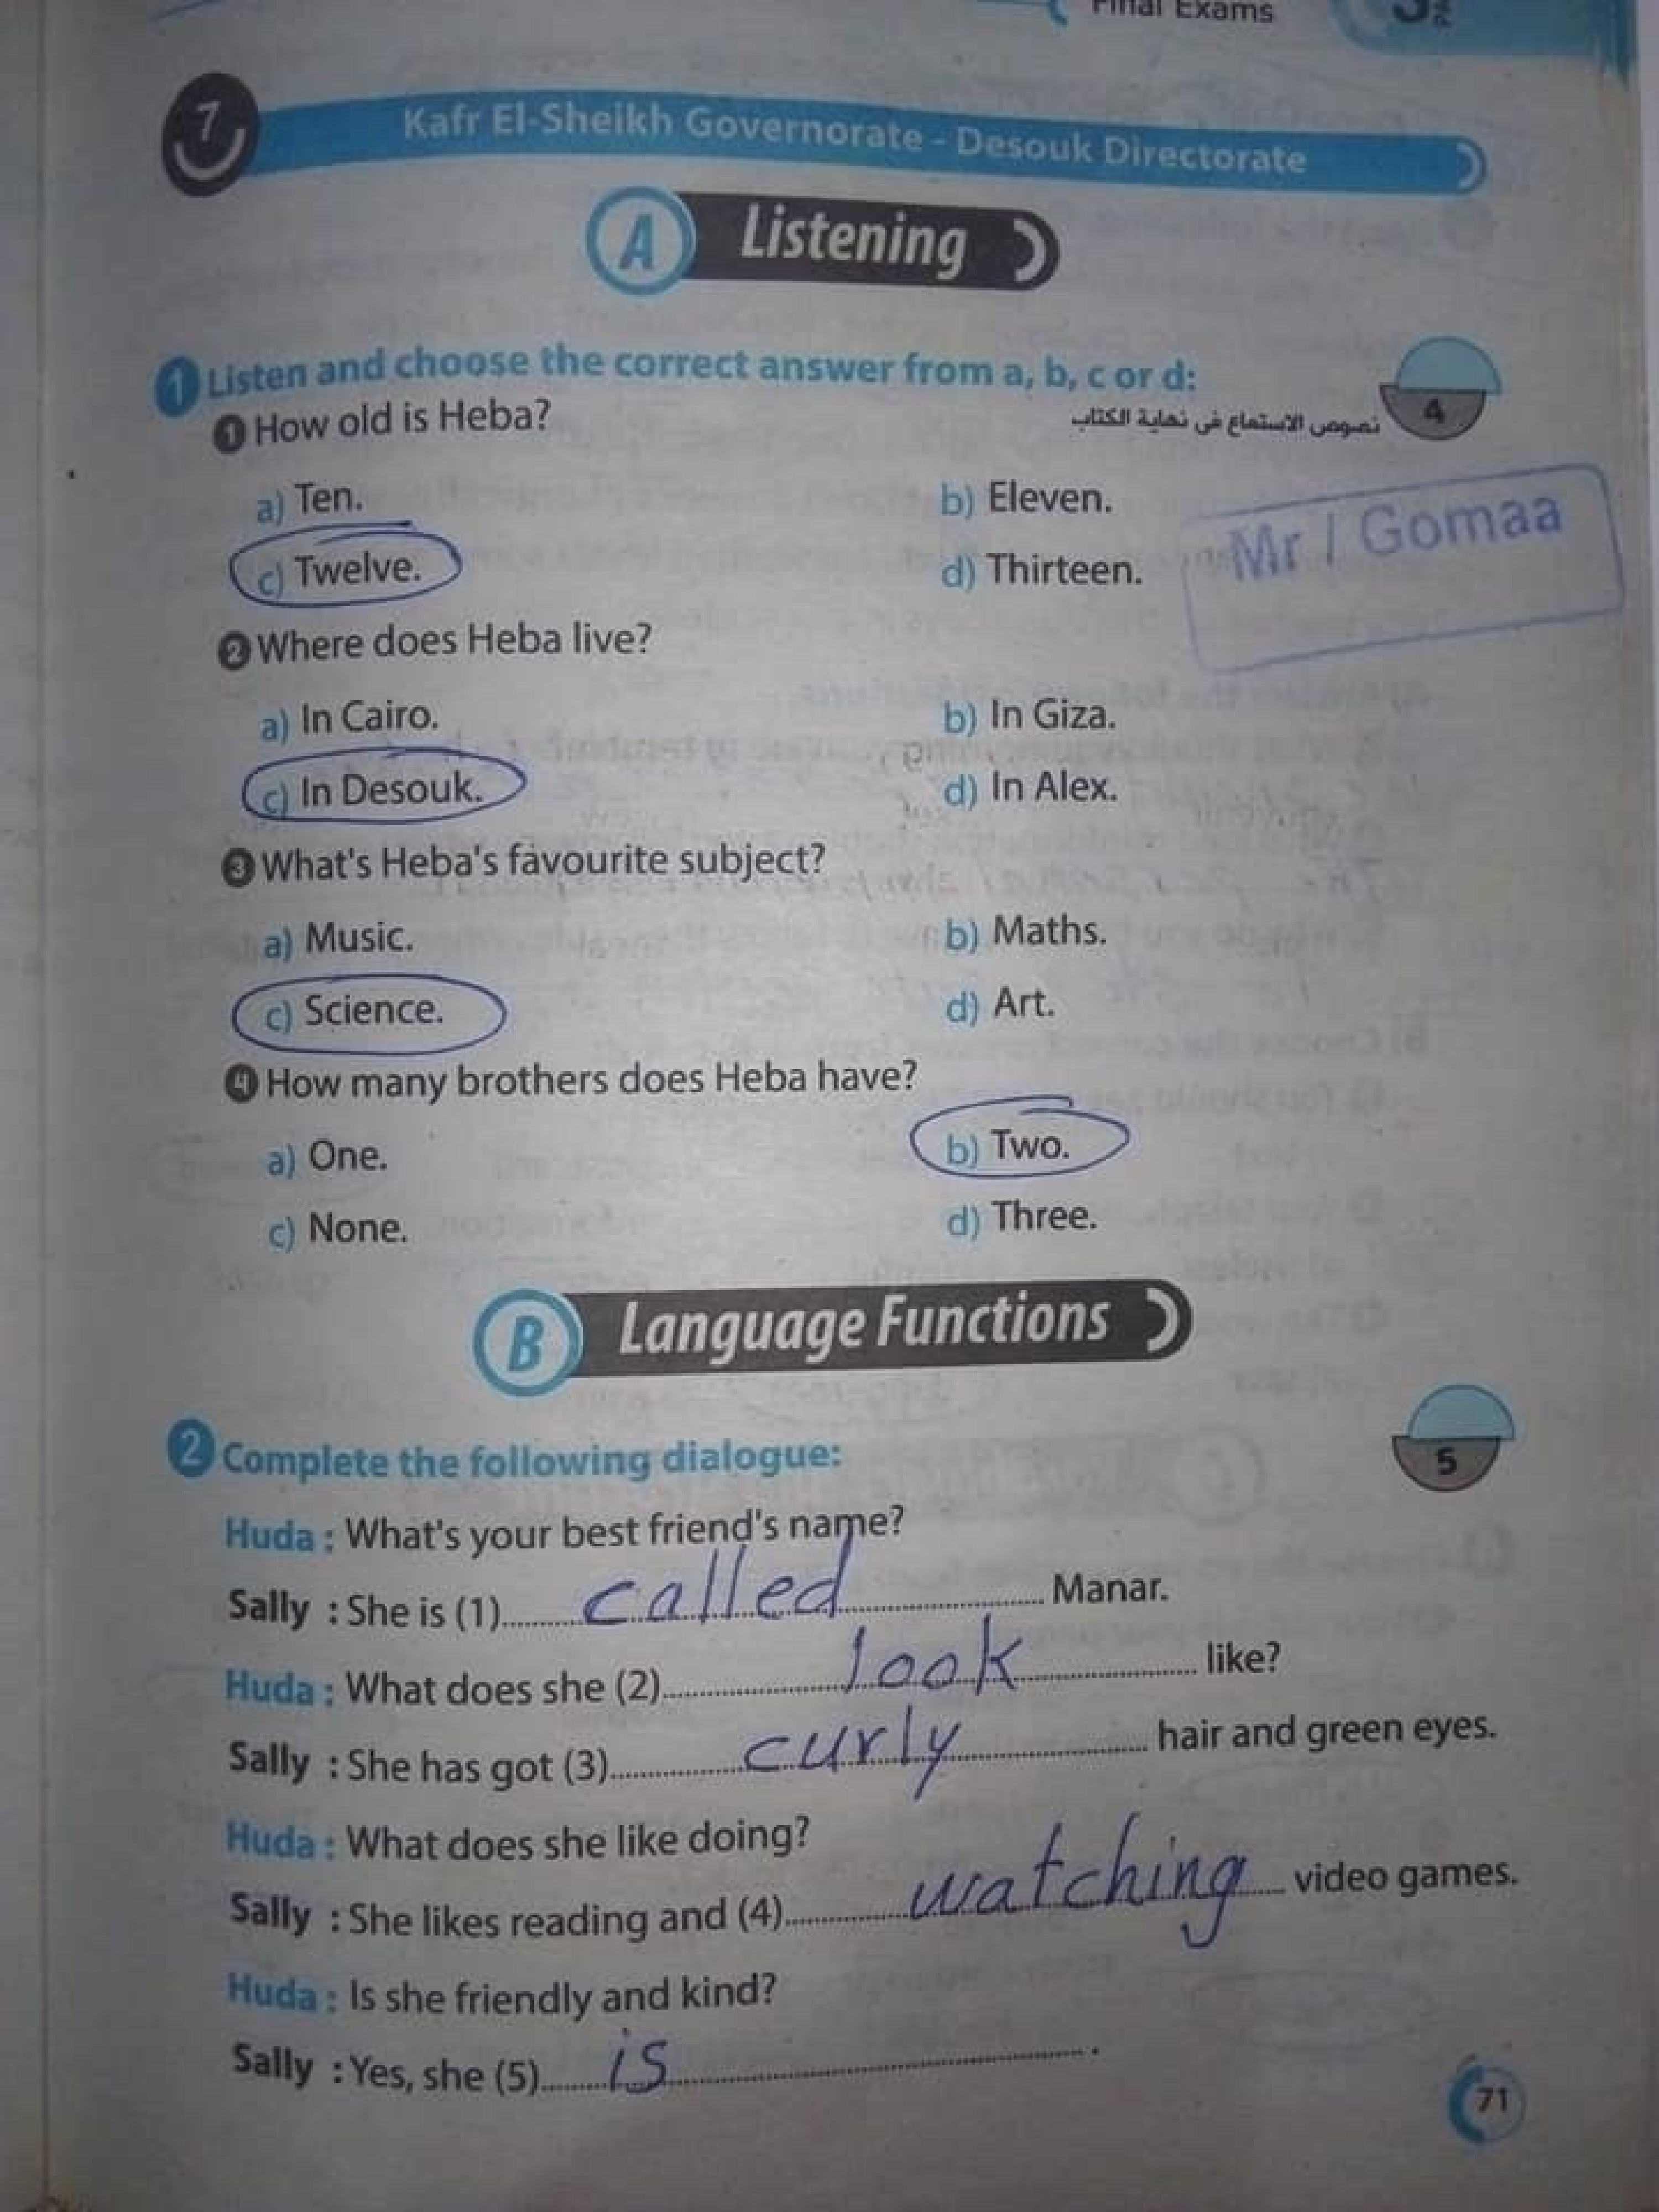 Final Exams
7 Kafr El-Sheikh Governorate - Desouk Directorate
A Listening
1 Listen and choose the correct answer from a, b, c or d:
4
نصوص الاستماع فى نهاية الكتاب
1 How old is Heba?
a) Ten. b) Eleven.
Mr / Gomaa
c) Twelve. d) Thirteen.
2 Where does Heba live?
a) In Cairo. b) In Giza.
c) In Desouk. d) In Alex.
3 What's Heba's favourite subject?
a) Music. b) Maths.
c) Science. d) Art.
4 How many brothers does Heba have?
a) One. b) Two.
c) None. d) Three.
B Language Functions
2 Complete the following dialogue:
5
Huda : What's your best friend's name?
Sally : She is (1) called Manar.
Huda : What does she (2) look like?
Sally : She has got (3) curly hair and green eyes.
Huda : What does she like doing?
Sally : She likes reading and (4) watching video games.
Huda : Is she friendly and kind?
Sally : Yes, she (5) is .
71